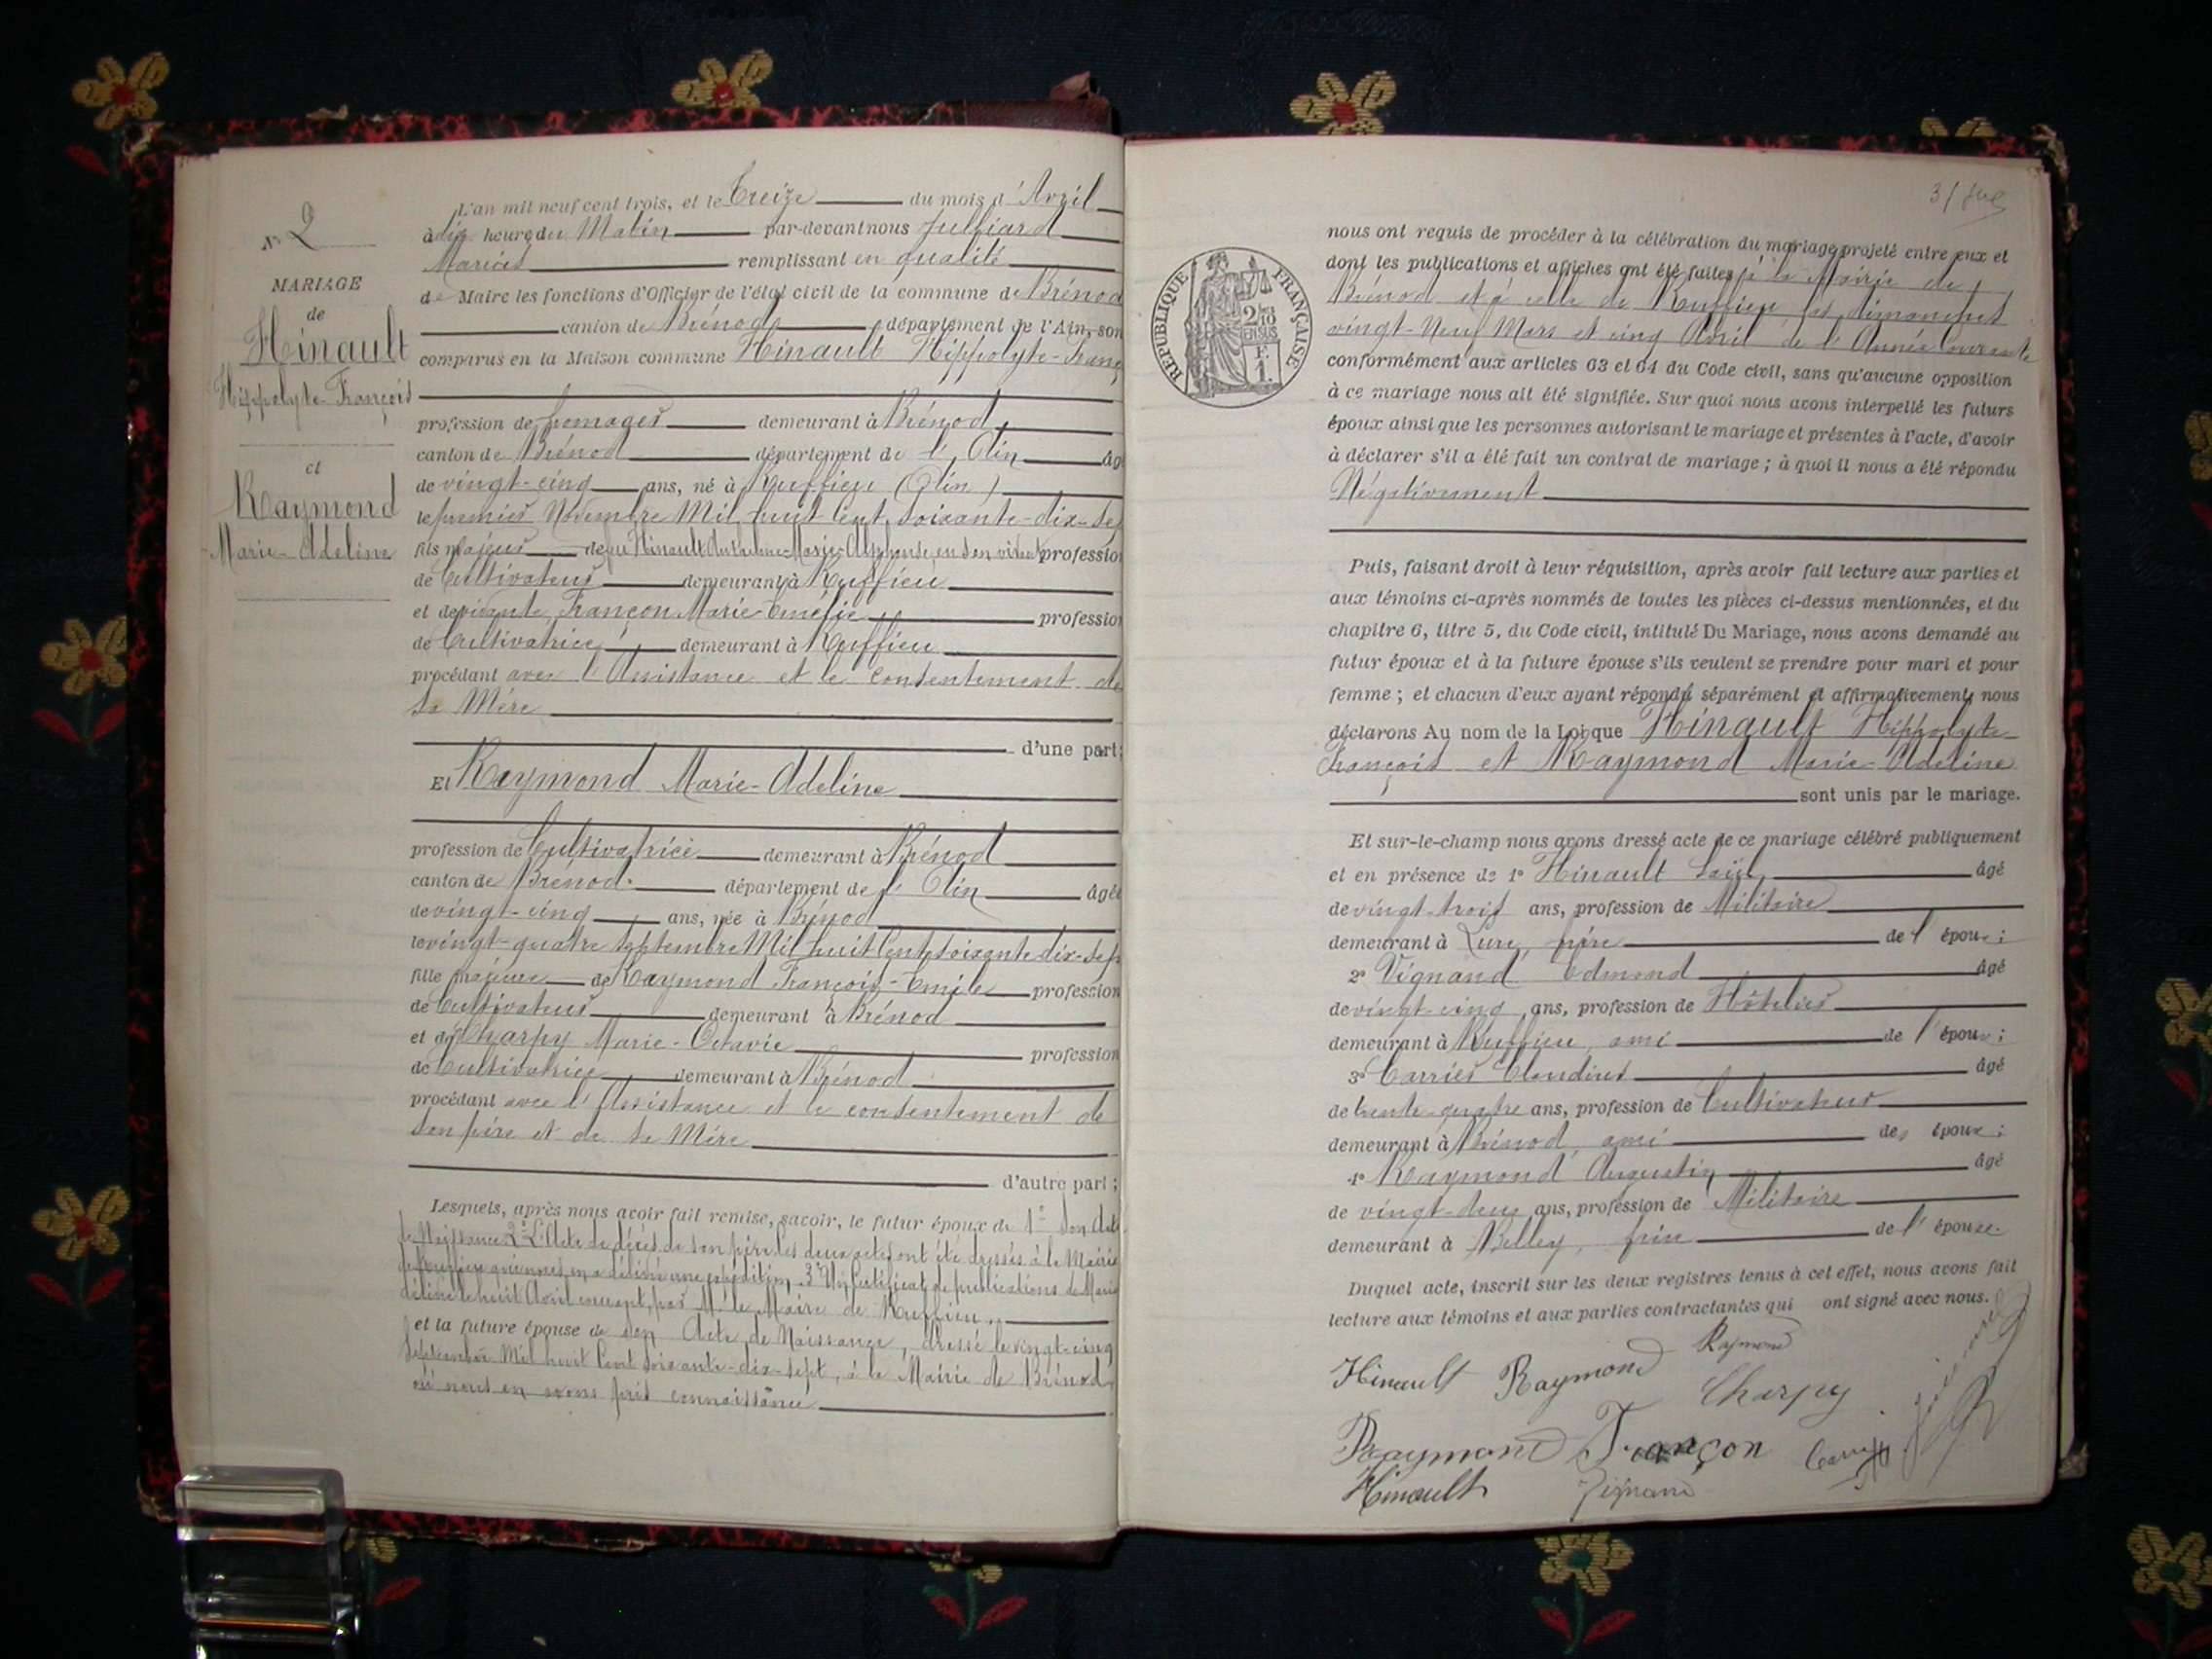 N° 2
MARIAGE
de
Hinault
Hippolyte-François
et
Raymond
Marie-Adeline
L'an mil neuf cent trois, et le Treize du mois d'Avril
à dix heures du Matin par-devant nous Julliard
Marius remplissant en qualité
de Maire les fonctions d'Officier de l'état civil de la commune de Brénod
canton de Brénod, département de l'Ain, son
comparus en la Maison commune Hinault Hippolyte-Franç
profession de fromager demeurant à Brénod,
canton de Brénod département de l'Ain âg
de vingt-cinq ans, né à Ruffieu (Ain)
le premier Novembre Mil huit Cent Soixante-dix-Sep
fils majeur de feu Hinault Anthelme-Marie-Alphonse, en son vivant profession
de Cultivateur demeurant à Ruffieu
et de vivante, Françon Marie-Emélie profession
de Cultivatrice demeurant à Ruffieu
procédant avec l'Assistance et le Consentement de
sa Mère
d'une part;
Et Raymond Marie-Adeline
profession de Cultivatrice demeurant à Brénod
canton de Brénod département de l'Ain âgée
de vingt-cinq ans, née à Brénod
le vingt-quatre Septembre Mil huit Cent soixante dix-sept
fille majeure de Raymond François-Emile profession
de Cultivateur demeurant à Brénod
et de Charpy Marie-Octavie profession
de Cultivatrice demeurant à Brénod
procédant avec l'Assistance et le consentement de
Son père et de Sa Mère
d'autre part;
Lesquels, après nous avoir fait remise, savoir, le futur époux de 1° Son Acte
de Naissance 2° L'Acte de décès de son père, les deux actes ont été dressés à la Mairie
de Ruffieu qui nous en a délivré une expédition. 3° Un Certificat de publications de Maria
délivré le huit Avril courant, par M. le Maire de Ruffieu.
et la future épouse de son Acte de Naissance, dressé le vingt-cinq
Septembre Mil huit Cent soixante-dix-sept, à la Mairie de Brénod,
où nous en avons pris connaissance
REPUBLIQUE FRANÇAISE
2/10
EN SUS
F.
1.
nous ont requis de procéder à la célébration du mariage projeté entre eux et
dont les publications et affiches ont été faites, à la Mairie de
Brénod et à celle de Ruffieu les dimanches
vingt-Neuf Mars et cinq Avril de l'Année Courante
conformément aux articles 63 et 64 du Code civil, sans qu'aucune opposition
à ce mariage nous ait été signifiée. Sur quoi nous avons interpellé les futurs
époux ainsi que les personnes autorisant le mariage et présentes à l'acte, d'avoir
à déclarer s'il a été fait un contrat de mariage; à quoi il nous a été répondu
Négativement
Puis, faisant droit à leur réquisition, après avoir fait lecture aux parties et
aux témoins ci-après nommés de toutes les pièces ci-dessus mentionnées, et du
chapitre 6, titre 5, du Code civil, intitulé Du Mariage, nous avons demandé au
futur époux et à la future épouse s'ils veulent se prendre pour mari et pour
femme; et chacun d'eux ayant répondu séparément et affirmativement, nous
déclarons Au nom de la Loi que Hinault Hippolyte-
François et Raymond Marie-Adeline
sont unis par le mariage.
Et sur-le-champ nous avons dressé acte de ce mariage célébré publiquement
et en présence de 1° Hinault âgé
de vingt-trois ans, profession de Militaire
demeurant à Lure, frère de l'époux;
2° Vignand Edmond âgé
de vingt-cinq ans, profession de Hôtelier
demeurant à Ruffieu, ami de l'époux;
3° Carrier Claudius âgé
de trente-quatre ans, profession de Cultivateur
demeurant à Brénod, ami des époux;
4° Raymond Augustin âgé
de vingt-deux ans, profession de Militaire
demeurant à Belley, frère de l'épouse.
Duquel acte, inscrit sur les deux registres tenus à cet effet, nous avons fait
lecture aux témoins et aux parties contractantes qui ont signé avec nous.
Hinault Raymond Raymond
Charpy
Raymond Françon
Hinault Vignand